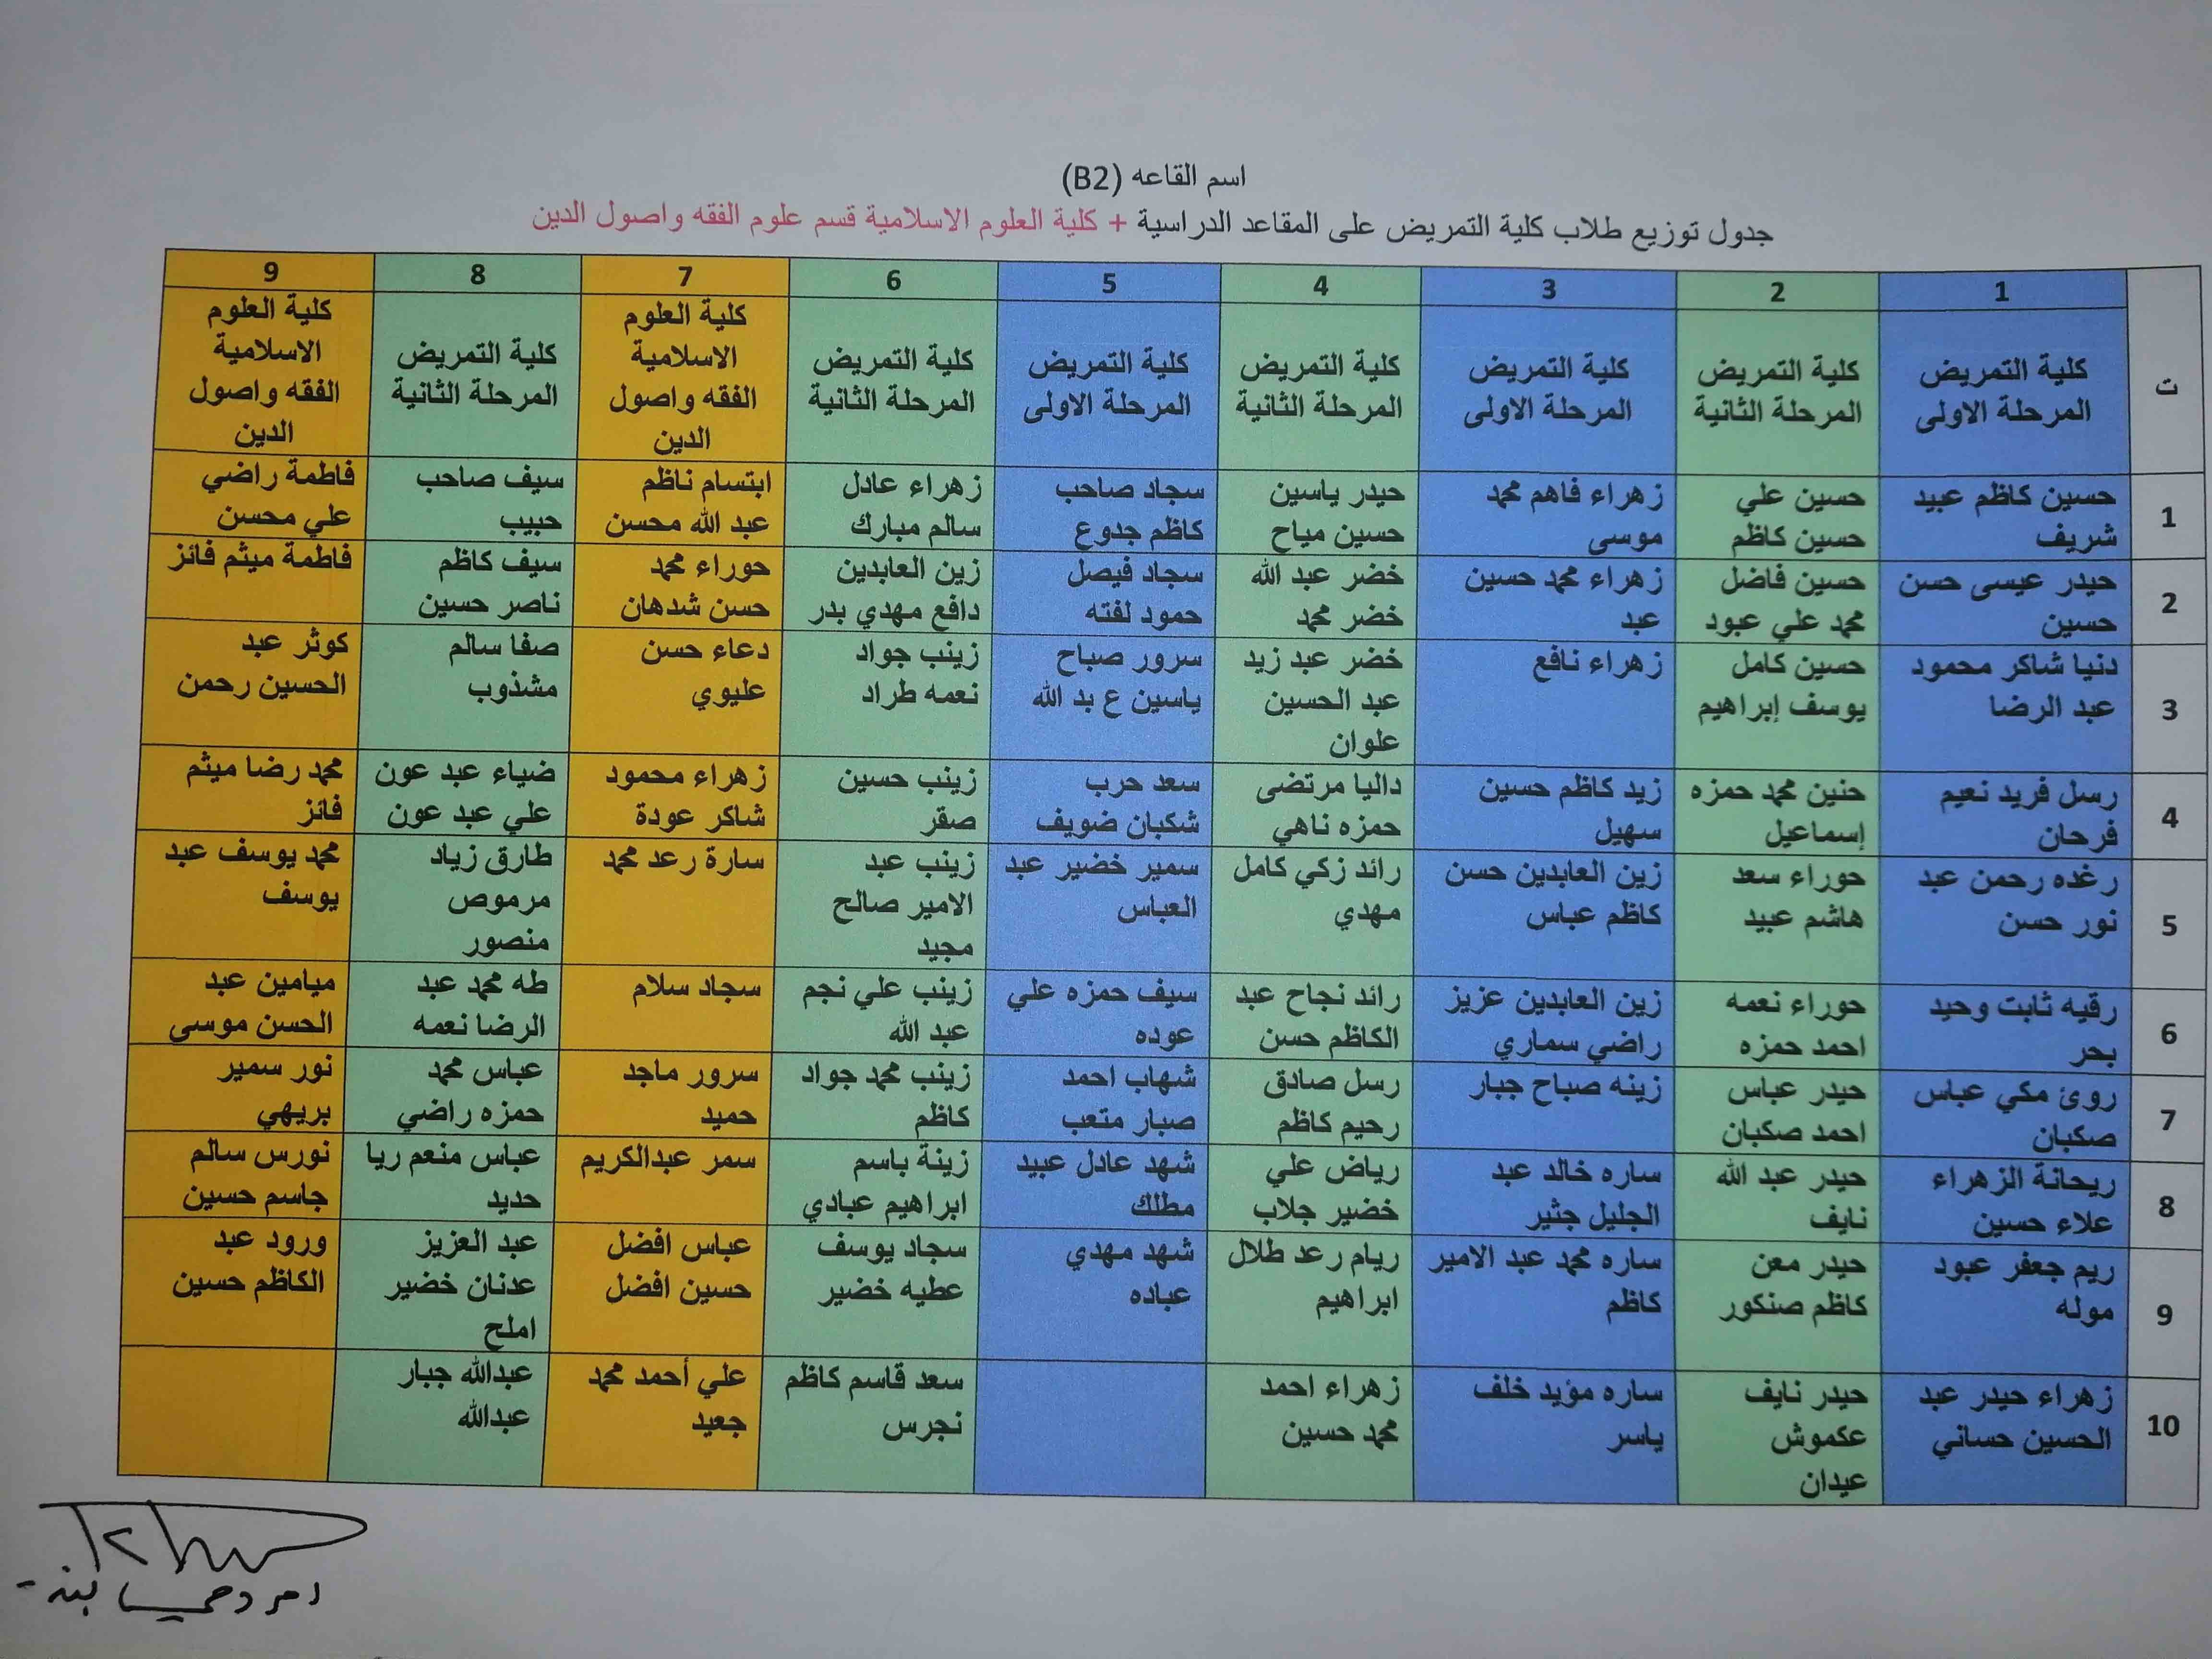 اسم القاعه (B2)
جدول توزيع طلاب كلية التمريض على المقاعد الدراسية + كلية العلوم الاسلامية قسم علوم الفقه واصول الدين
ت 1 2 3 4 5 6 7 8 9
كلية التمريض المرحلة الاولى
كلية التمريض المرحلة الثانية
كلية التمريض المرحلة الاولى
كلية التمريض المرحلة الثانية
كلية التمريض المرحلة الاولى
كلية التمريض المرحلة الثانية
كلية العلوم الاسلامية الفقه واصول الدين
كلية التمريض المرحلة الثانية
كلية العلوم الاسلامية الفقه واصول الدين
1
حسين كاظم عبيد شريف
حسين علي حسين كاظم
زهراء فاهم محمد موسى
حيدر ياسين حسين مياح
سجاد صاحب كاظم جدوع
زهراء عادل سالم مبارك
ابتسام ناظم عبد الله محسن
سيف صاحب حبيب
فاطمة راضي علي محسن
2
حيدر عيسى حسن حسين
حسين فاضل محمد علي عبود
زهراء محمد حسين عبد
خضر عبد الله خضر محمد
سجاد فيصل حمود لفته
زين العابدين دافع مهدي بدر
حوراء محمد حسن شدهان
سيف كاظم ناصر حسين
فاطمة ميثم فائز
3
دنيا شاكر محمود عبد الرضا
حسين كامل يوسف إبراهيم
زهراء نافع
خضر عبد زيد عبد الحسين علوان
سرور صباح ياسين ع بد الله
زينب جواد نعمه طراد
دعاء حسن عليوي
صفا سالم مشذوب
كوثر عبد الحسين رحمن
4
رسل فريد نعيم فرحان
حنين محمد حمزه إسماعيل
زيد كاظم حسين سهيل
داليا مرتضى حمزه ناهي
سعد حرب شكبان ضويف
زينب حسين صقر
زهراء محمود شاكر عودة
ضياء عبد عون علي عبد عون
محمد رضا ميثم فائز
5
رغده رحمن عبد نور حسن
حوراء سعد هاشم عبيد
زين العابدين حسن كاظم عباس
رائد زكي كامل مهدي
سمير خضير عبد العباس
زينب عبد الامير صالح مجيد
سارة رعد محمد
طارق زياد مرموص منصور
محمد يوسف عبد يوسف
6
رقيه ثابت وحيد بحر
حوراء نعمه احمد حمزه
زين العابدين عزيز راضي سماري
رائد نجاح عبد الكاظم حسن
سيف حمزه علي عوده
زينب علي نجم عبد الله
سجاد سلام
طه محمد عبد الرضا نعمه
ميامين عبد الحسن موسى
7
روئ مكي عباس صكبان
حيدر عباس احمد صكبان
زينه صباح جبار
رسل صادق رحيم كاظم
شهاب احمد صبار متعب
زينب محمد جواد كاظم
سرور ماجد حميد
عباس محمد حمزه راضي
نور سمير بريهي
8
ريحانة الزهراء علاء حسين
حيدر عبد الله نايف
ساره خالد عبد الجليل جثير
رياض علي خضير جلاب
شهد عادل عبيد مطلك
زينة باسم ابراهيم عبادي
سمر عبدالكريم
عباس منعم ريا حديد
نورس سالم جاسم حسين
9
ريم جعفر عبود موله
حيدر معن كاظم صنكور
ساره محمد عبد الامير كاظم
ريام رعد طلال ابراهيم
شهد مهدي عباده
سجاد يوسف عطيه خضير
عباس افضل حسين افضل
عبد العزيز عدنان خضير املح
ورود عبد الكاظم حسين
10
زهراء حيدر عبد الحسين حساني
حيدر نايف عكموش عيدان
ساره مؤيد خلف ياسر
زهراء احمد محمد حسين
سعد قاسم كاظم نجرس
علي أحمد محمد جعيد
عبدالله جبار عبدالله